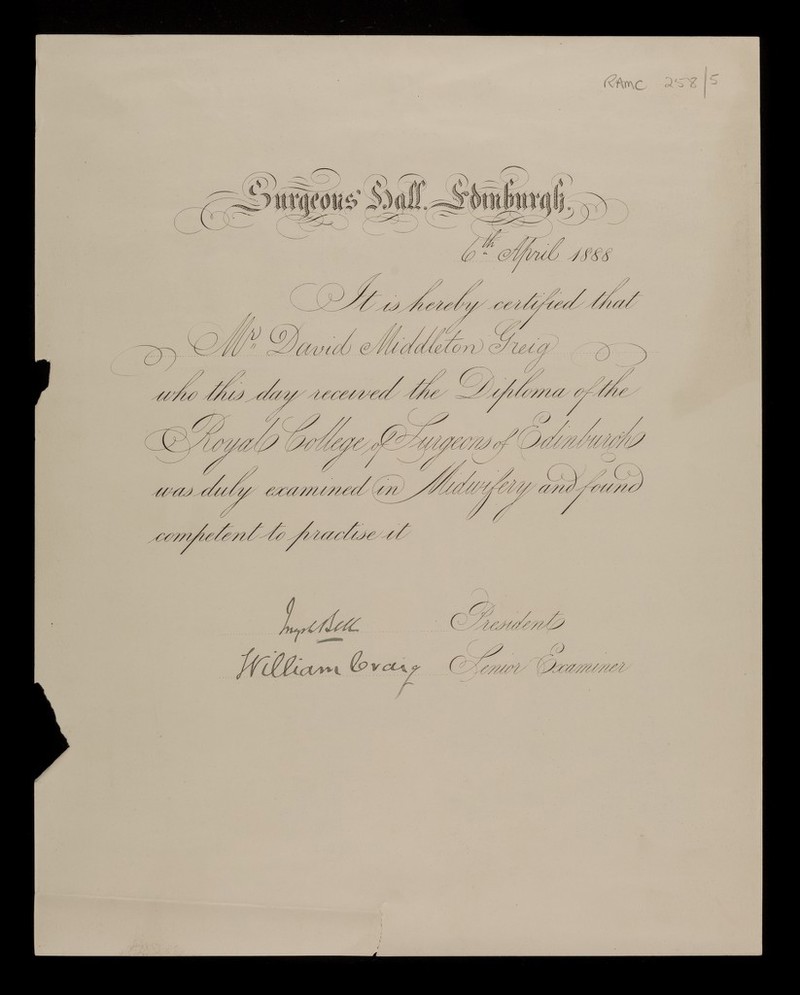 RAMC 258/5
Surgeons' Hall. Edinburgh.
6th April 1888
It is hereby certified that
Mr David Middleton Greig
who this day received the Diploma of the
Royal College of Surgeons of Edinburgh
was duly examined in Midwifery and found
competent to practise it
Joseph Bell President
William Craig Senior Examiner